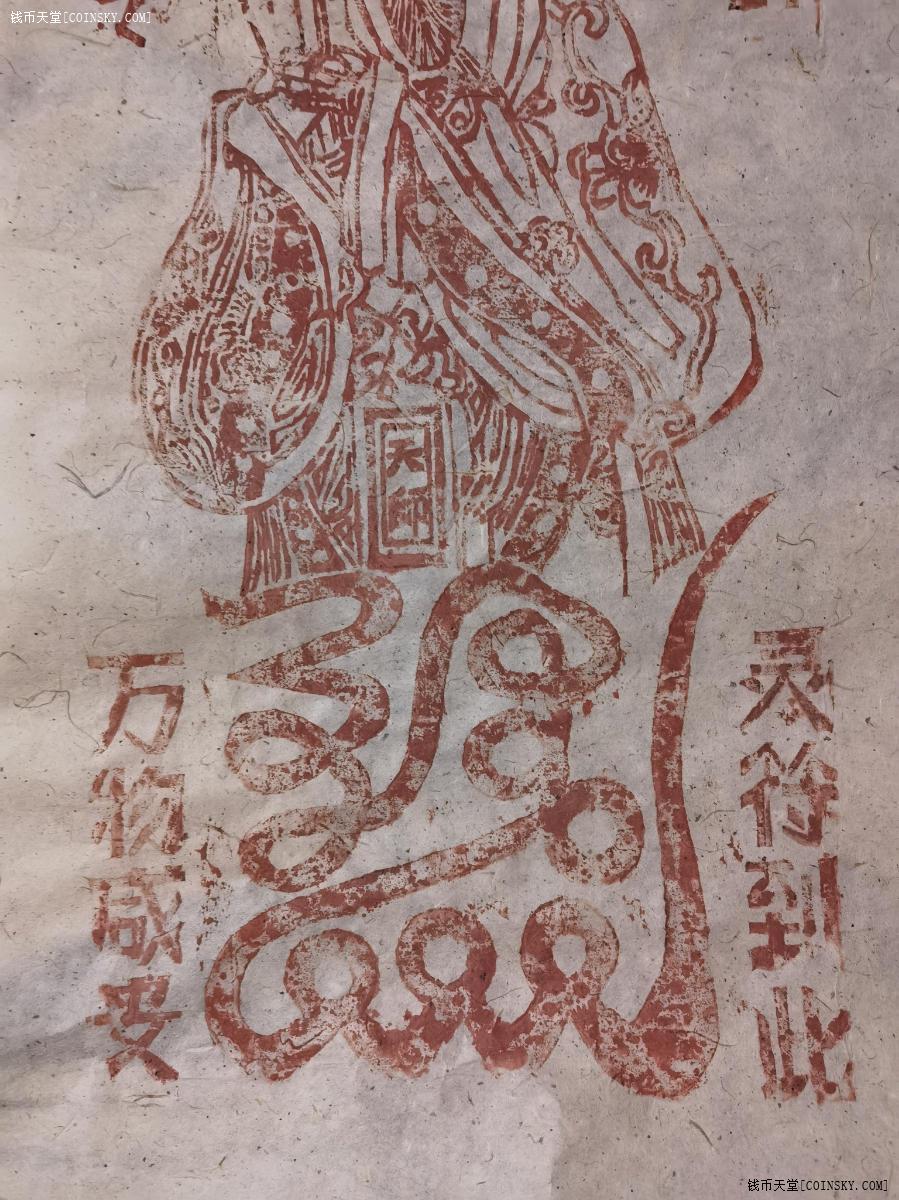 钱币天堂[COINSKY.COM]
天
灵符到此
万物咸安
钱币天堂[COINSKY.COM]